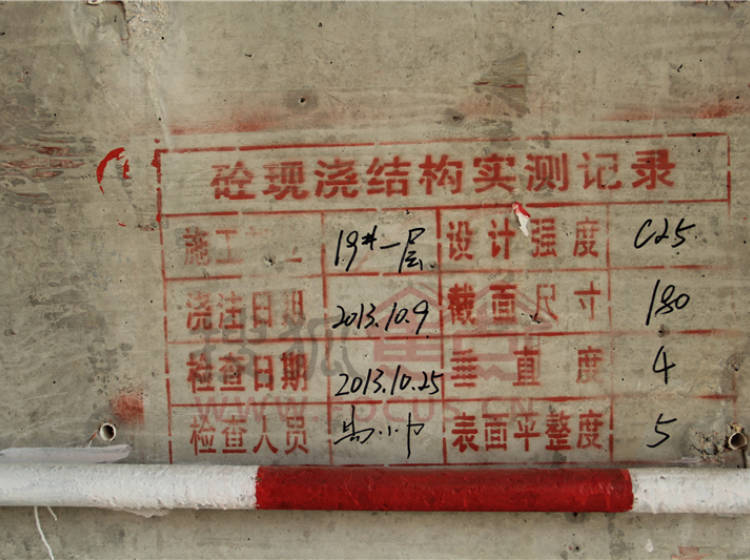 砼现浇结构实测记录
施工 19#一层 设计强度 C25
浇注日期 2013.10.9 截面尺寸 180
检查日期 2013.10.25 垂直度 4
检查人员 小巾 表面平整度 5
搜狐焦点
WWW.FOCUS.CN